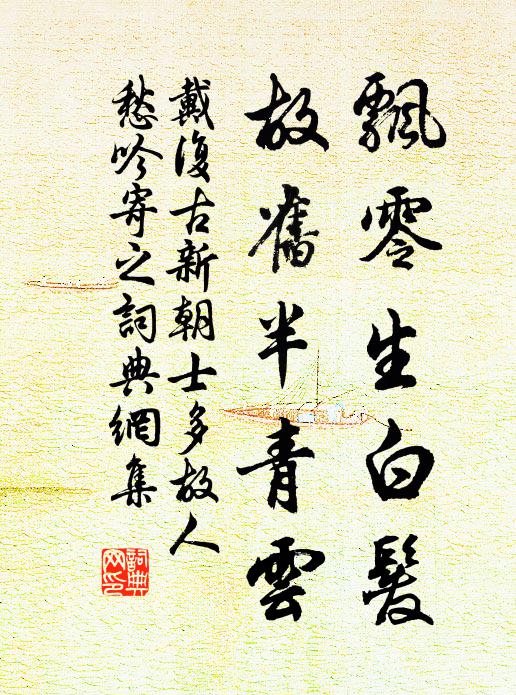 飄零生白髮
故舊半青雲
戴復古新朝士多故人
愁吟寄之詞典網集
詞典
网印